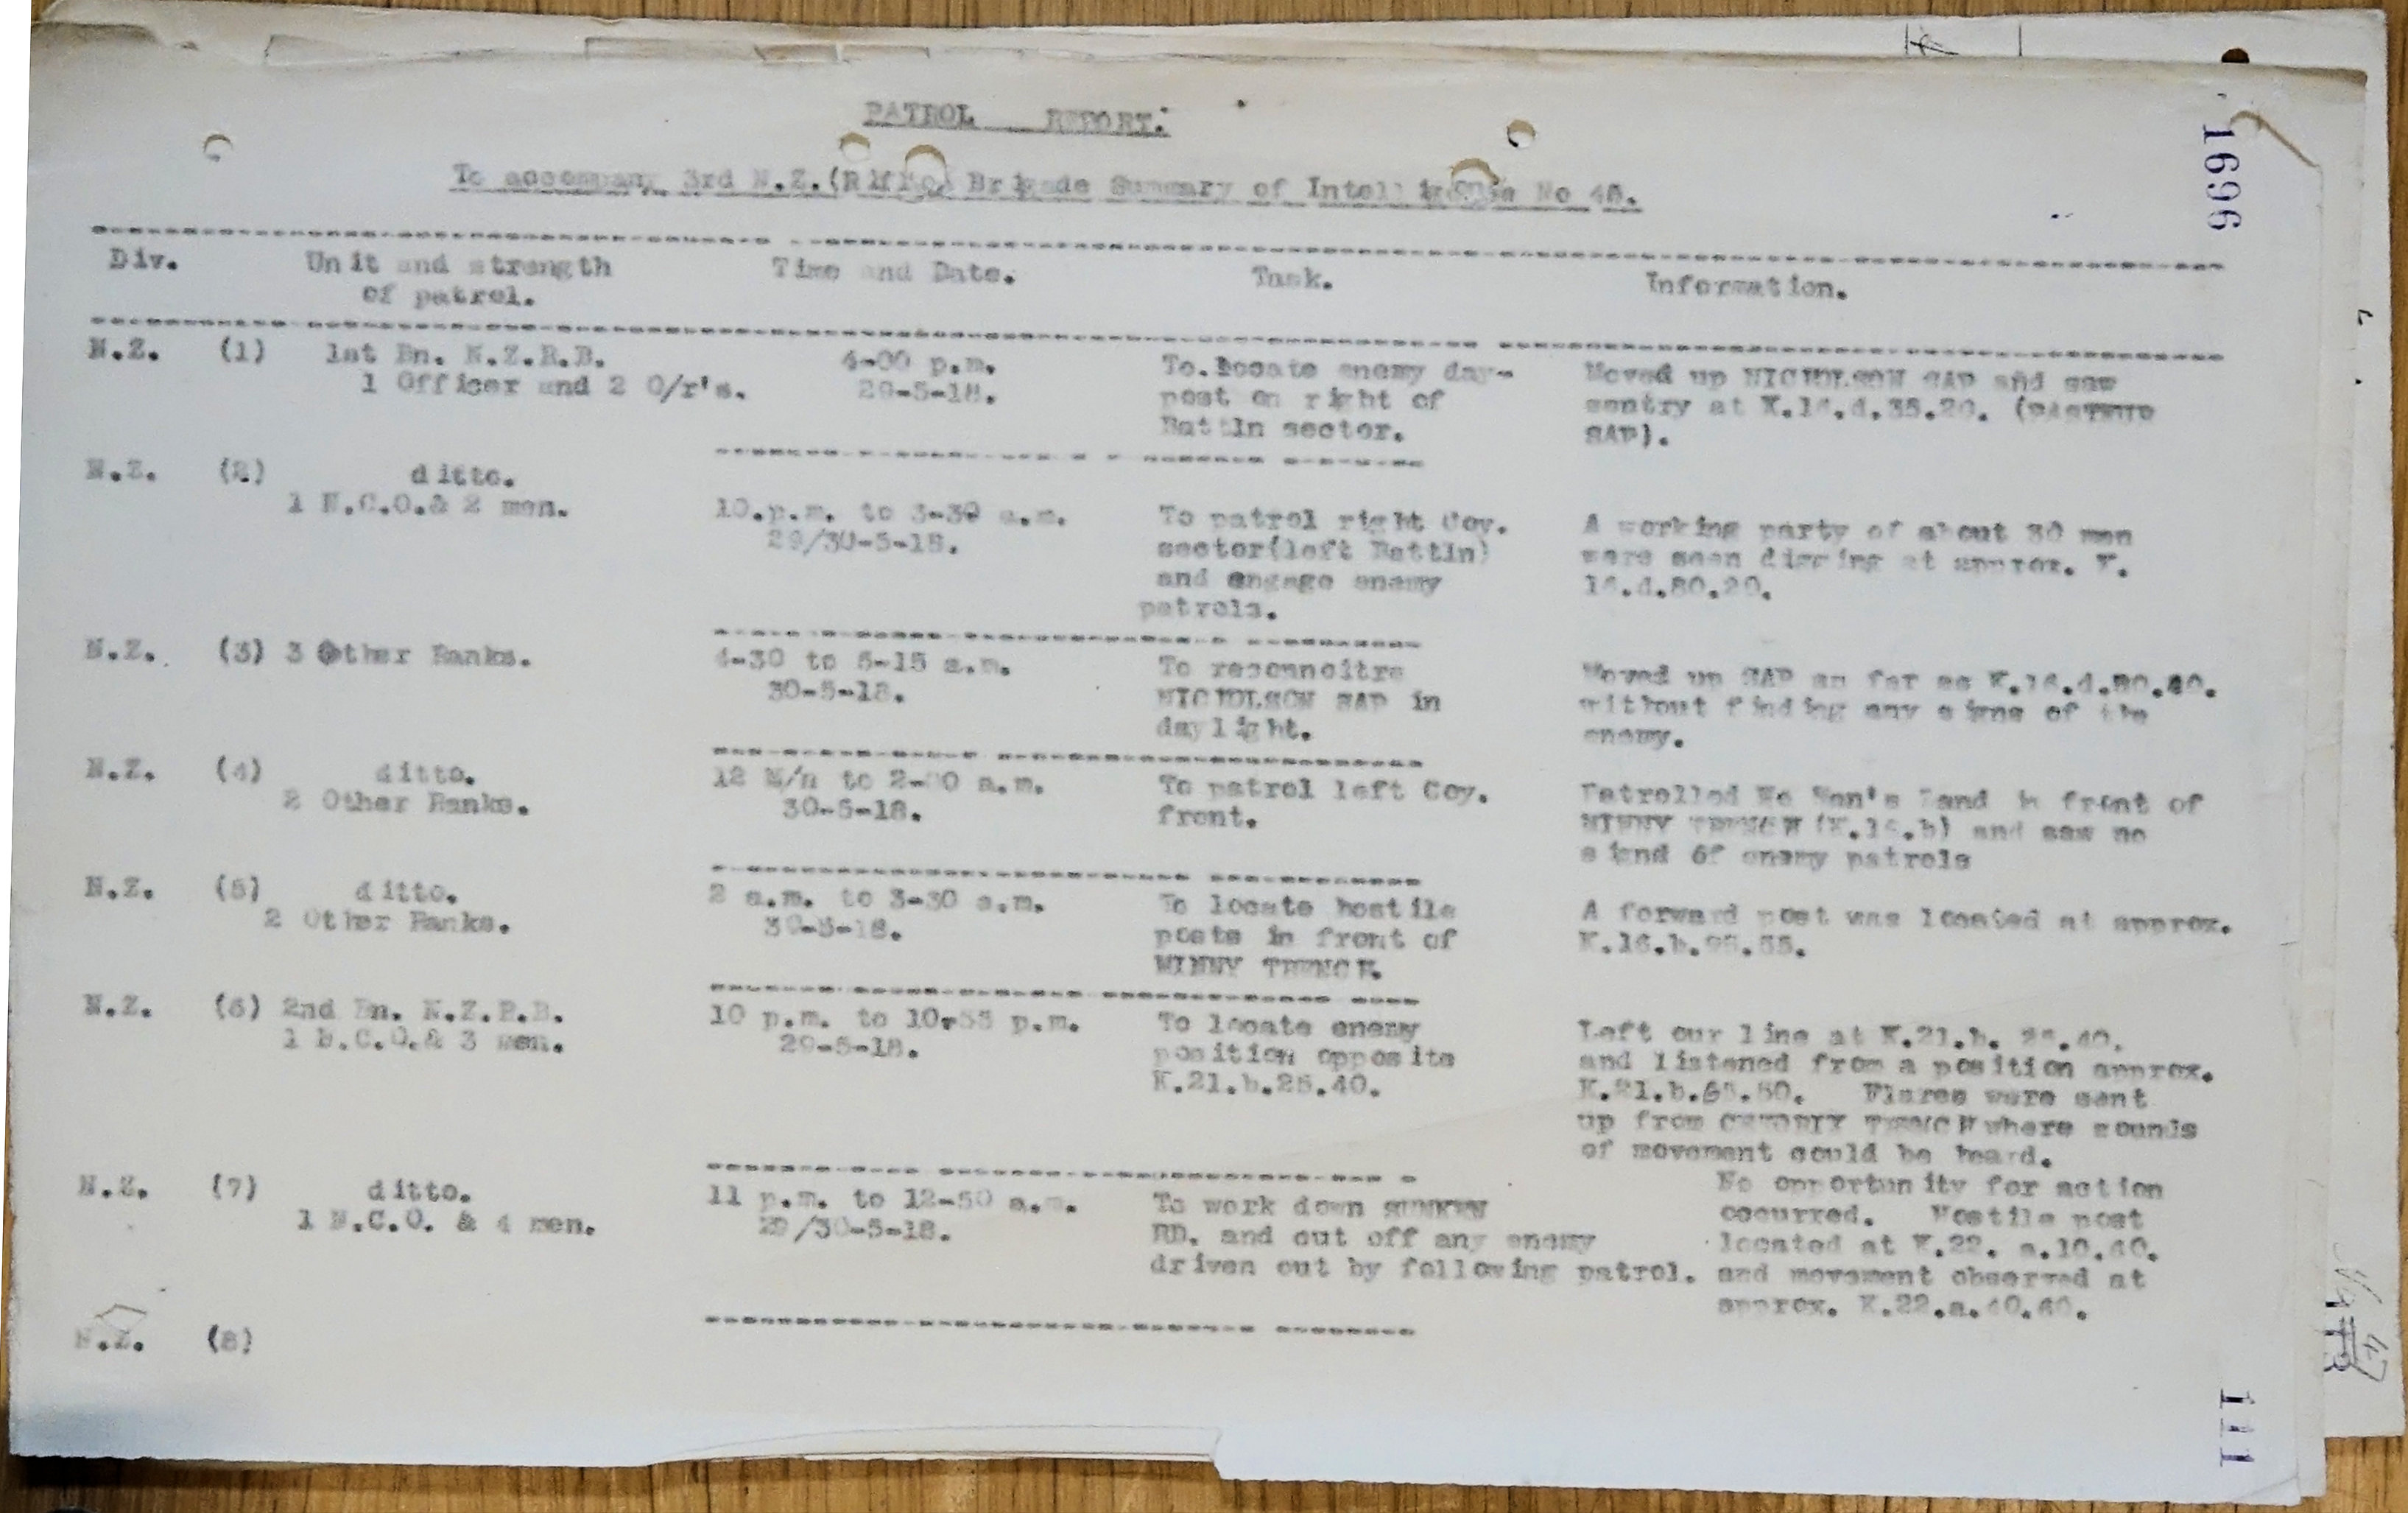 PATROL REPORT.
To accompany 3rd N.Z.(Rifle) Brigade Summary of Intelligence No
Div. Unit and strength Time and Date. Task. Information.
of patrol.
N.Z. (1) 1st Bn. N.Z.R.B.
1 Officer and 2 O/r's.
4-00 p.m.
29-5-18.
To.locate enemy day-
post on right of
Battln sector.
Moved up NICHOLSON SAP and saw
sentry at K.16.d.35.20.
SAP).
N.Z. (2) ditto.
1 N.C.O.& 2 men.
10.p.m. to 3-30 a.m.
29/30-5-18.
To patrol right Coy.
sector(left Battln)
and engage enemy
patrols.
A working party of about 30 men
were seen digging at approx. K.
16.d.80.20.
N.Z. (3) 3 Other Ranks.
4-30 to 5-15 a.m.
30-5-18.
To reconnoitre
NICHOLSON SAP in
daylight.
Moved up SAP as far as
without finding any signs of the
enemy.
N.Z. (4) ditto.
2 Other Ranks.
12 M/n to a.m.
30-5-18.
To patrol left Coy.
front.
Patrolled No Man's Land in front of
MINNY TRENCH (K.16.b) and saw no
signd of enemy patrols
N.Z. (5) ditto.
2 Other Ranks.
2 a.m. to 3-30 a.m.
30-5-18.
To locate hostile
posts in front of
MINNY TRENCH.
A forward post was located at approx.
N.Z. (6) 2nd Bn. N.Z.R.B.
1 N.C.O.& 3 men.
10 p.m. to 10-55 p.m.
29-5-18.
To locate enemy
position opposite
K.21.b.25.40.
Left our line at K.21.b. 25.40.
and listened from a position approx.
Flares were sent
up from TRENCH where sounds
of movement could be heard.
N.Z. (7) ditto.
1 N.C.O. & 4 men.
11 p.m. to 12-50 a.m.
29/30-5-18.
To work down SUNKEN
RD. and cut off any enemy
driven out by following patrol.
No opportunity for action
occurred. Hostile post
located at K.22. a.10.60.
and movement observed at
approx. K.22.a.40.60.
N.Z. (8)
1696
111